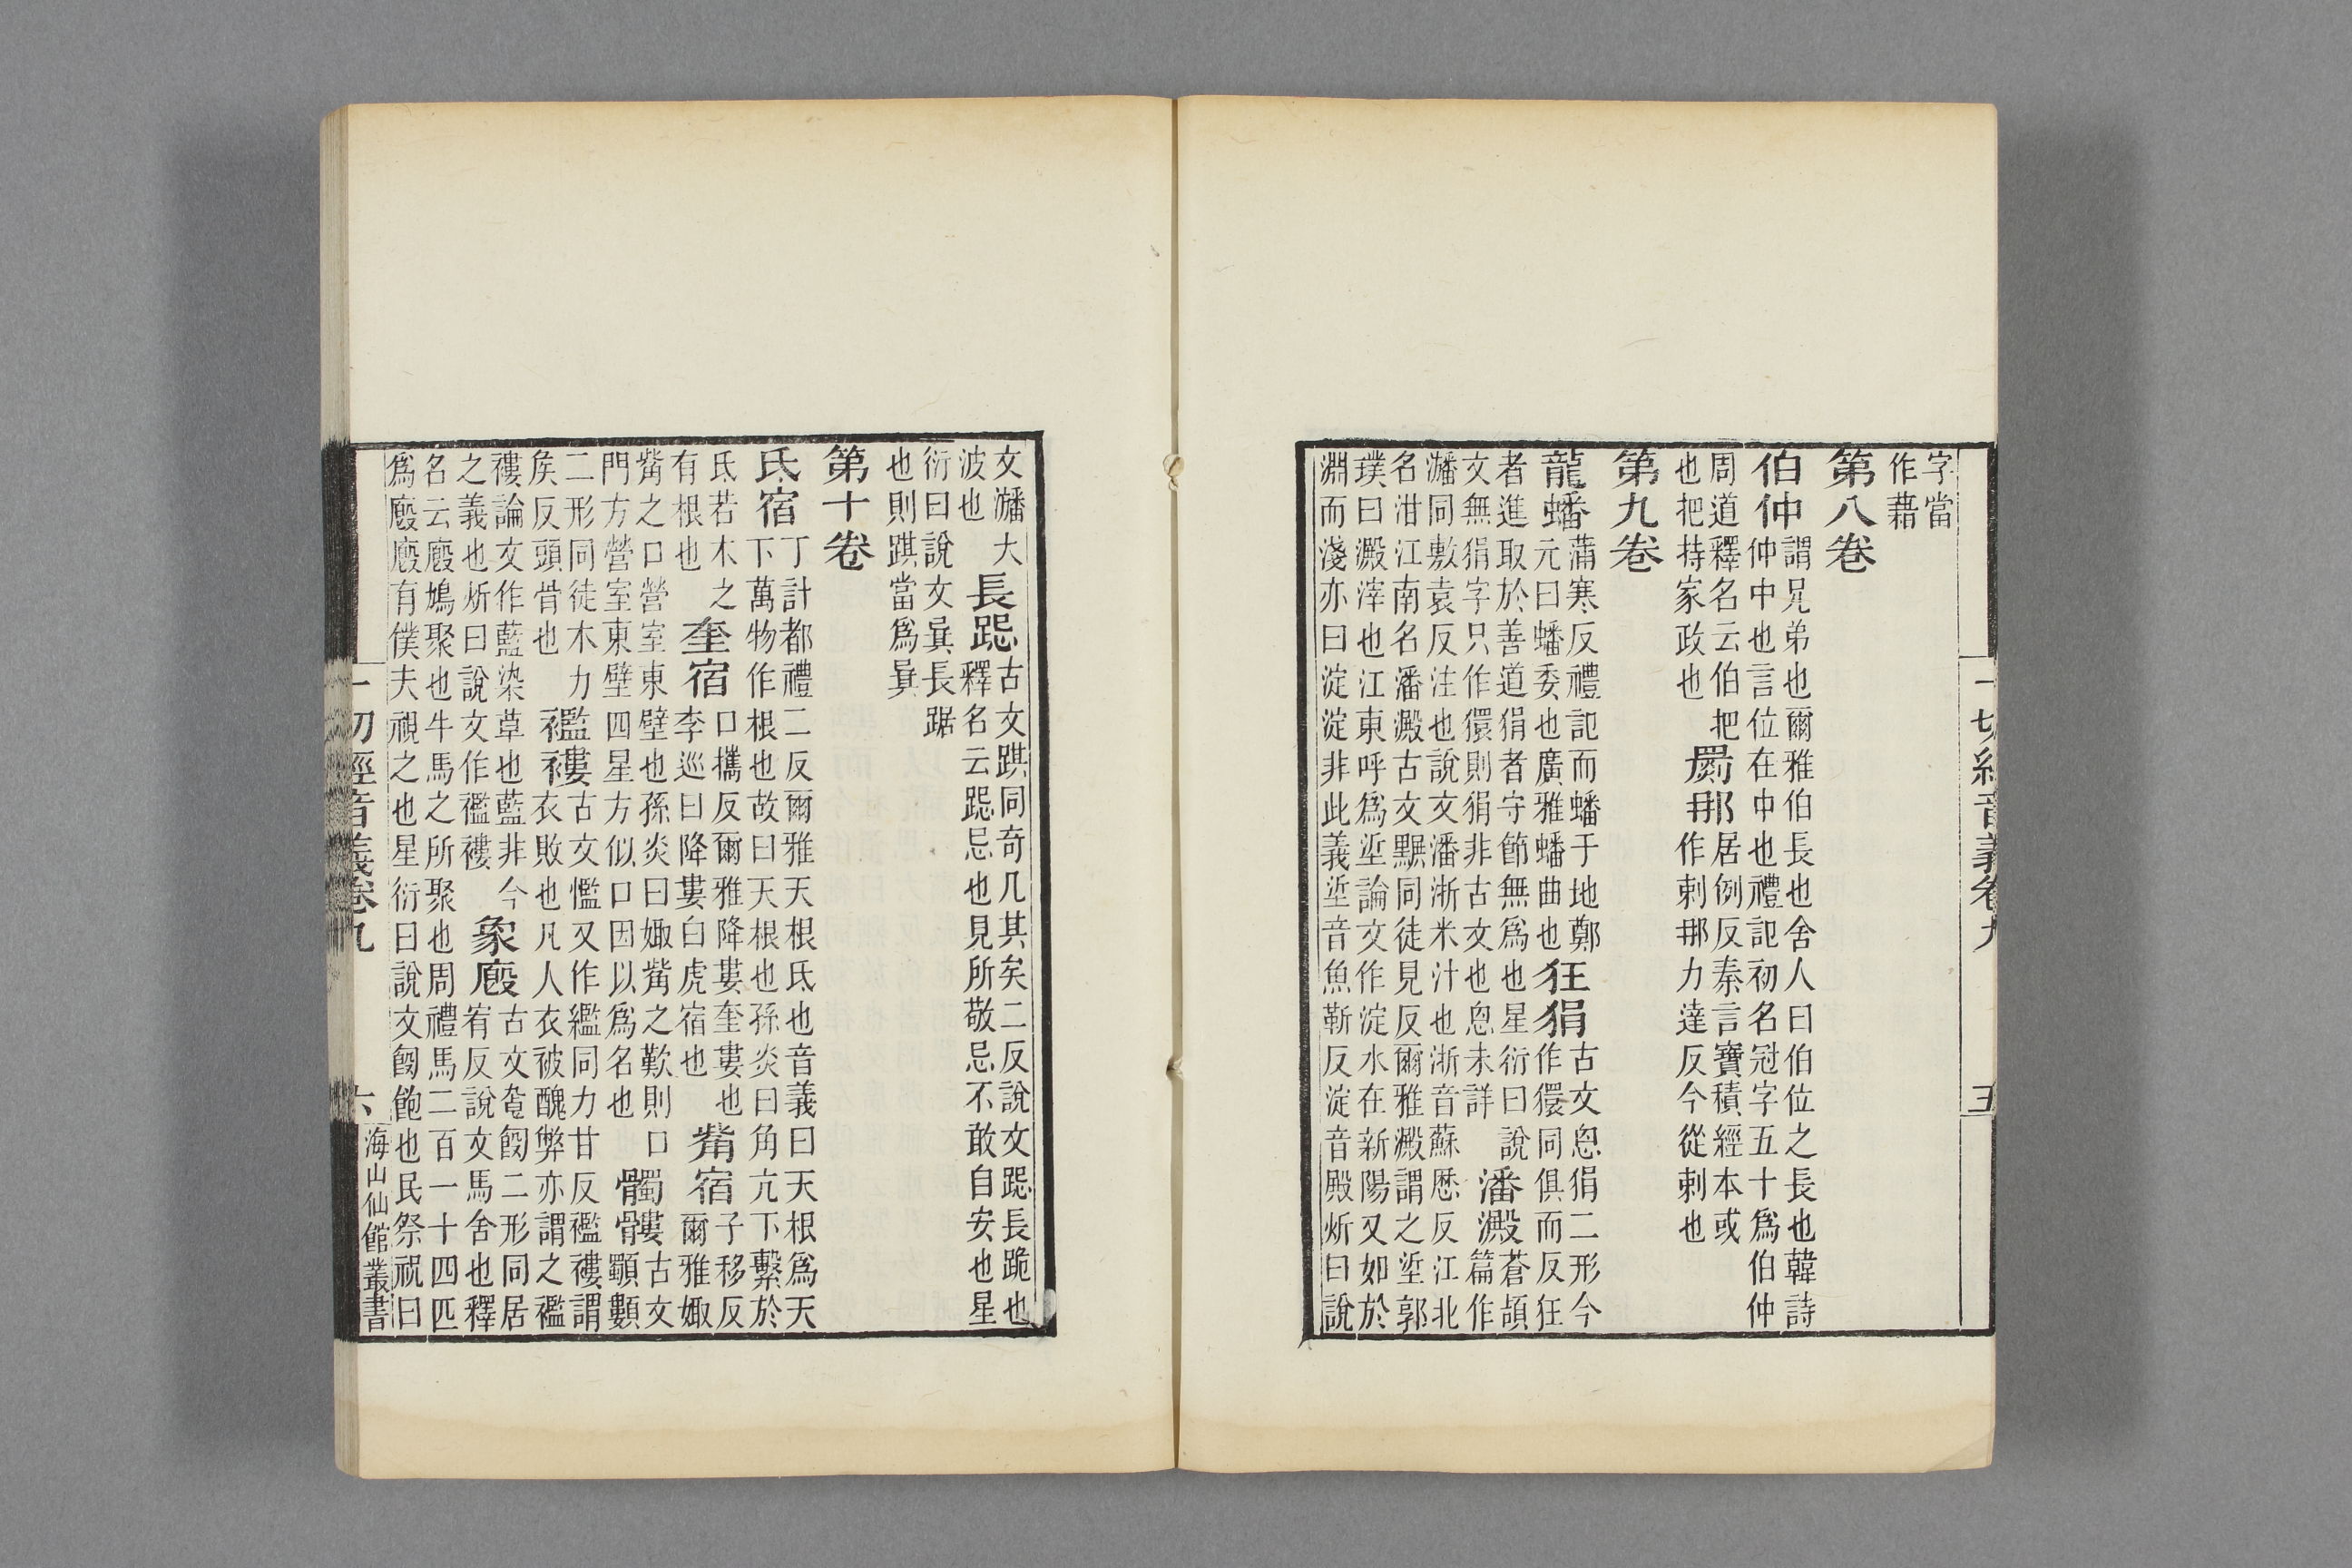 一切經音義卷九 五
字當作藉
第八卷
伯仲謂兄弟也爾雅伯長也舍人曰伯位之長也韓詩仲中也言位在中也禮記初名冠字五十爲伯仲
周道釋名云伯把也把持家政也罽那居例反秦言寶積經本或作剌那力達反今從剌也
第九卷
龍蟠蒲寒反禮記而蟠于地鄭元曰蟠委也廣雅蟠曲也狂狷古文狷二形今作獧同俱而反狂
者進取於善道狷者守節無爲也星衍曰說文無狷字只作獧則狷非古文也未詳潘澱蒼頡篇作
同敷袁反注也說文潘淅米汁也淅音蘇歷反江北名泔江南名潘澱古文黰同徒見反爾雅澱謂之垽郭
璞曰澱滓也江東呼爲垽論文作淀水在新陽又如於淵而淺亦曰淀淀非此義垽音魚靳反淀音殿炘曰說
文大波也長跽古文䟸同奇几其矣二反說文跽長跪也釋名云跽忌也見所敬忌不敢自安也星
衍曰說文㠱長踞也則䟸當爲㠱
第十卷
氐宿丁計都禮二反爾雅天根氐也音義曰天根爲天下萬物作根也故曰天根也孫炎曰角亢下繫於
氐若木之有根也奎宿口攜反爾雅降婁奎婁也李巡曰降婁白虎宿也觜宿子移反爾雅娵
觜之口營室東壁也孫炎曰娵觜之歎則口門方營室東壁四星方似口因以爲名也髑髏古文
二形同徒木力矦反頭骨也襤褸古文懢又作繿同力甘反襤褸謂衣敗也凡人衣被醜弊亦謂之襤
褸論文作藍染草也藍非今之義也炘曰說文作襤褸象廄古文二形同居宥反說文馬舍也釋
名云廄鳩聚也牛馬之所聚也周禮馬二百一十四匹爲廄廄有僕夫視之也星衍曰說文飽也民祭祝曰
一切經音義卷九 六 海山仙館叢書